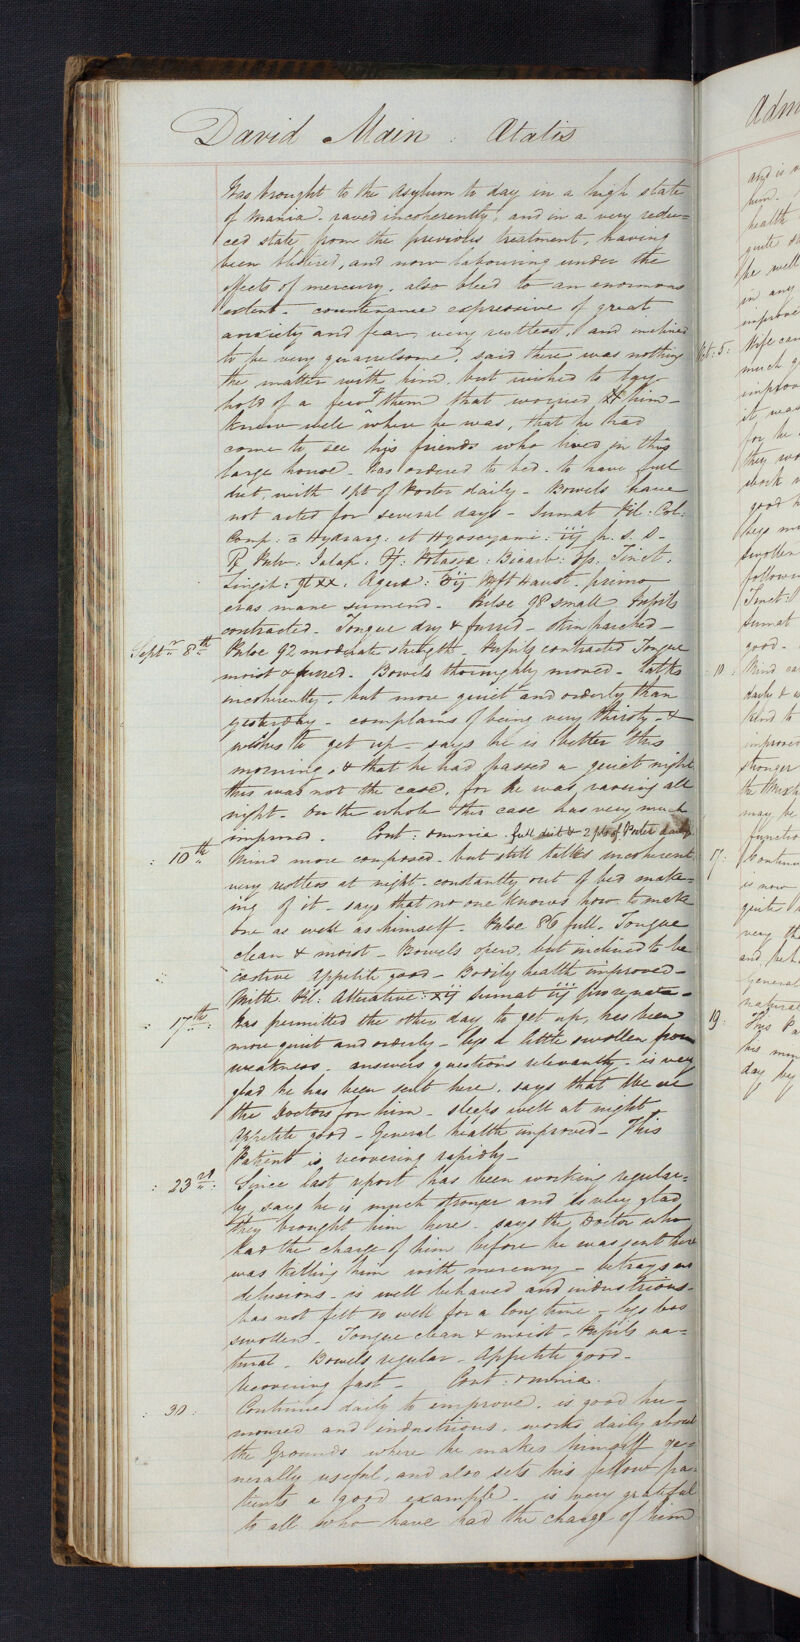 David Main. Ætatis
Was brought to the Asylum to day in a high state
of Mania. raved incoherently, and in a very redu=
ced state from the previous treatment, having
been blistered, and now labouring under the
effects of mercury, also bleed to an enormous
extent – countenance expressive of great
anxiety and fear, very restless, and inclined
to be very quarrelsome, said there was nothing
the matter with him, but wished to lay
hold of a few of them that worried him –
knew well where he was, that he had
come to see his friends who lived in this
large house – Was ordered to bed. to have full
diet, with 1 pt of Porter daily – Bowels have
not acted for several days – Sumat Pil: Col:
Comp: c Hydrarg: et Hyoscyami: iij h. s. s –
℞ Pulv: Jalap. Potassæ: Bicarb: Tinct.
Zingib: gtt xx. Aqua: ft Haust: primo
cras mane sumend. Pulse 98 small Pupils
contracted – Tongue dry & furred – Skin parched –
Septr 8th Pulse 92 moderate strength – Pupils contracted Tongue
moist & furred. Bowels thoroughly moved – talks
incoherently, but more quiet and orderly than
yesterday – complains of being very thirsty – &
wishes to get up – says he is better this
morning, & that he had passed a quiet night
this was not the case, for he was raving all
night – On the whole this case has very much
improved. Cont: omnia. full diet & 2 pts of Porter daily
10th Mind more composed – but still talks incoherent
very restless at night – constantly out of bed mak=
ing of it – says that no one knows how to make
one as well as himself – Pulse 86 full – Tongue
clean & moist – Bowels open, but inclined to be
costive appetite good – Bodily health improved –
Mitte Pil: Alterative: xij sumat iij pro re nata –
17th Was permitted the other day to get up, has been
more quiet and orderly – legs a little swollen from
weakness. answers questions relevantly – is very
glad he has been sent here, says that We are
the Doctors for him – sleeps well at night
Appetite good – General health improved – This
Patient is recovering rapidly –
23rd Since last report has been working regular=
ly, says he is much stronger and is very glad
they brought him here – says the Doctor who
had the charge of him before he was sent here
was killing him with mercury – betrays no
delusions – is well behaved and industrious –
has not felt so well for a long time – legs less
swollen – Tongue clean & moist – Pupils na=
tural – Bowels regular – Appetite good –
Recovering fast – Cont: omnia.
30: Continues daily to improve, is good hu=
moured and industrious, works daily about
the Grounds where he makes himself ge=
nerally useful, and also sets his fellow pa=
tients a good example – is very grateful
to all who have had the charge of him
Adm
and is
him.
health
quite
be well
in any
improve
Oct: 5: Wife
much
it, was
for he
they
work
good
legs
swollen
follow
Tinct:
Sumat
good –
10: Mind
daily &
kind to
improve
stronger
the
may be
function
17: Contin
is now
quite
very
and
General
natural
19: This Pa
his
day by